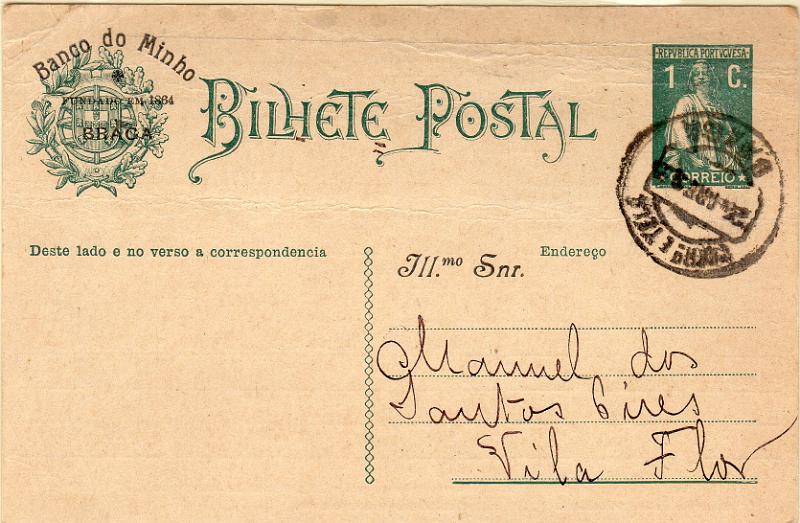 Banco do Minho
FUNDADO EM 1864
BRAGA
BILHETE POSTAL
REPUBLICA PORTUGUESA
1 C.
CORREIO
Deste lado e no verso a correspondencia
Endereço
Ill.mo Snr.
Manuel dos
Santos Pires
Vila Flor